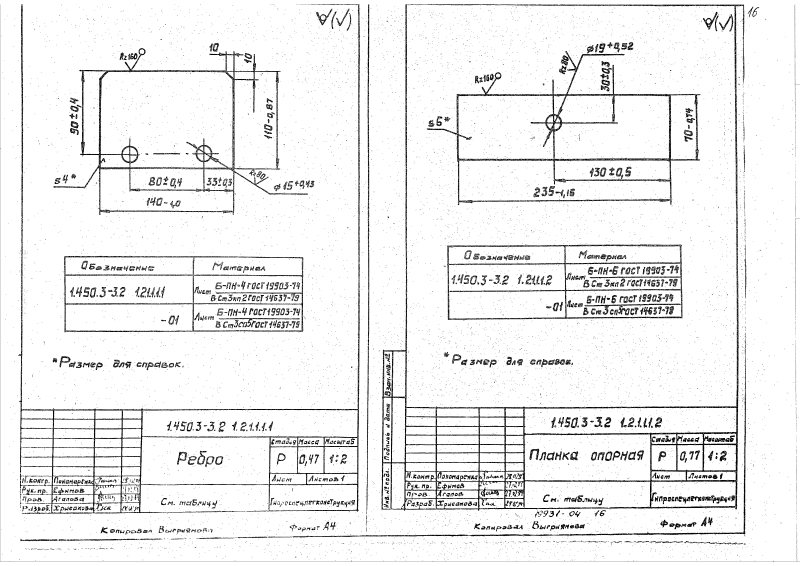 16
√(√)
Rz160
10
10
90±0,4
110-0,87
s4*
80±0,4
33±0,5
Rz80
ø15+0,43
140-1,0
Обозначение Материал
1.450.3-3.2 1.2.1.1.1 Лист Б-ПН-4 ГОСТ 19903-74
В Ст3кп2 ГОСТ 14637-79
-01 Лист Б-ПН-4 ГОСТ 19903-74
В Ст3сп5 ГОСТ 14637-79
*Размер для справок.
1.450.3-3.2 1.2.1.1.1
Ребро
Стадия Масса Масштаб
Р 0,47 1:2
Лист Листов 1
Н.контр. Пономаренко
Рук. пр. Ефимов
Пров. Агапова
Разраб. Хрисанова
См. таблицу
Гипроспецлегконструкция
Копировал Выгриянова Формат А4
√(√)
Rz160
Rz80
ø19+0,52
30±0,3
s6*
70-0,74
130±0,5
235-1,15
Обозначение Материал
1.450.3-3.2 1.2.1.1.2 Лист Б-ПН-6 ГОСТ 19903-74
В Ст3кп2 ГОСТ 14637-79
-01 Лист Б-ПН-6 ГОСТ 19903-74
В Ст3сп5 ГОСТ 14637-79
*Размер для справок.
Взам.инв.№
Подпись и дата
Инв.№ подл.
1.450.3-3.2 1.2.1.1.2
Планка опорная
Стадия Масса Масштаб
Р 0,77 1:2
Лист Листов 1
Н.контр. Пономаренко
Рук. пр. Ефимов
Пров. Агапов
Разраб. Хрисанова
См. таблицу
Гипроспецлегконструкция
19931-04 16
Копировал Выгриянова Формат А4